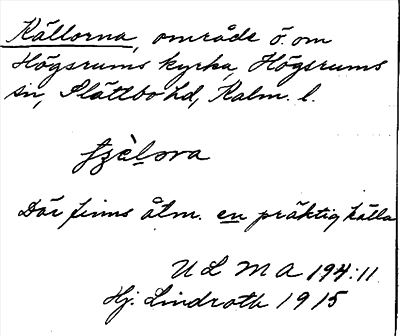 Källorna, område ö. om
Högsrums kyrka, Högsrums
sn, Slättbo hd, Kalm. l.
Där finns åtm. en präktig källa
ULMA 194:11
Hj. Lindroth 1915